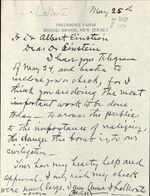 LaMonte May 25th
PIEDMONT FARM
BOUND BROOK, NEW JERSEY
To Dr Albert Einstein,
Dear Dr Einstein
I have your telegram
of May 24, and hasten to
enclose my check, for I
think you are doing the most
important work to be done
today - to arouse the public
to the importance of realizing
the change the bomb is, to our
civilization.
You have my hearty help and
approval. I only wish my check
were much larger. I am